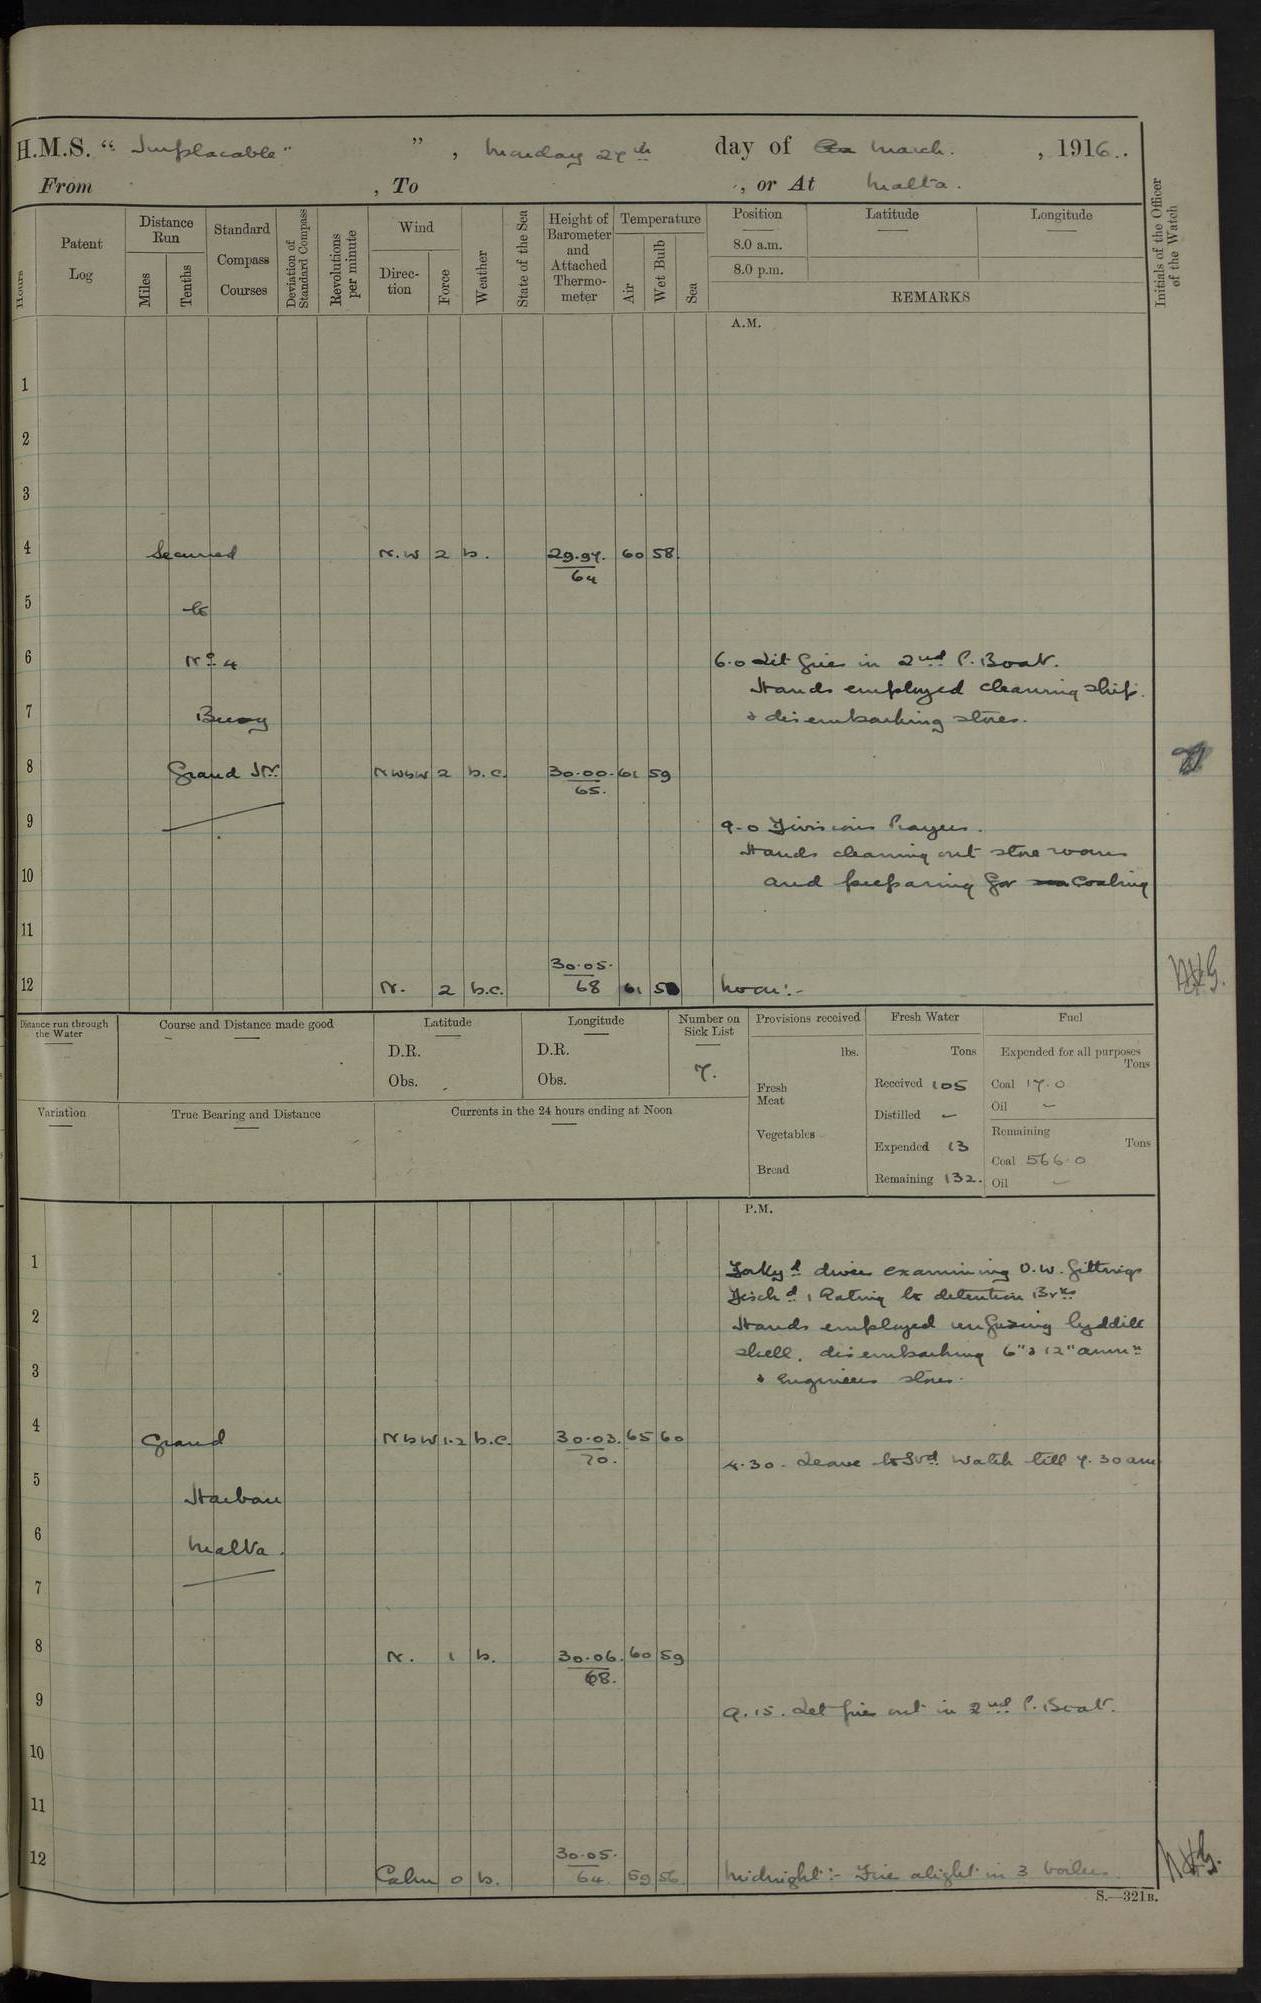 H.M.S. “ Implacable” ” , Monday 27th day of March. , 1916..
From , To , or At Malta.
Hours
Patent Log
Distance Run
Miles
Tenths
Standard Compass Courses
Deviation of Standard Compass
Revolutions per minute
Wind
Direc-tion
Force
Weather
State of the Sea
Height of Barometer and Attached Thermo-meter
Temperature
Air
Wet Bulb
Sea
Position Latitude Longitude
8.0 a.m.
8.0 p.m.
REMARKS
Initials of the Officer of the Watch
A.M.
1
2
3
4 Secured N.W 2 b. 29.97. 60 58.
64
5 to
6 No 4 6.0 Lit fires in 2nd P. Boat.
Hands employed cleaning ship.
7 Buoy & disembarking stores.
8 Grand Hr. NWbW 2 b.c. 30.00. 61 59
65.
9 9.0 Divisions Prayers.
Hands cleaning out store rooms
10 and preparing for coaling
11
30.05.
12 N. 2 b.c. 68 61 Noon:-
Distance run through the Water
Course and Distance made good
Latitude
D.R.
Obs.
Longitude
D.R.
Obs.
Number on Sick List
7.
Variation
True Bearing and Distance
Currents in the 24 hours ending at Noon
Provisions received
lbs.
Fresh Meat
Vegetables
Bread
Fresh Water
Tons
Received 105
Distilled —
Expended 13
Remaining 132.
Fuel
Expended for all purposes
Tons
Coal 17.0
Oil —
Remaining
Tons
Coal 566.0
Oil —
P.M.
1 Dockyd divers examining U.W. fittings
Dischd 1 Rating to detention Brks
2 Hands employed unfuzing lyddite
shell, disembarking 6" & 12" ammn
3 & Engineers stores.
4 Grand NbW 1-2 b.c. 30.03. 65 60
70.
4.30. Leave to Stbd Watch till 7.30 am
5 Harbour
6 Malta.
7
8 N. 1 b. 30.06. 60 59
68.
9 9.15. Let fires out in 2nd P. Boat.
10
11
30.05.
12 Calm 0 b. 64. 59 56. Midnight:- Fires alight in 3 boilers.
S.—321B.